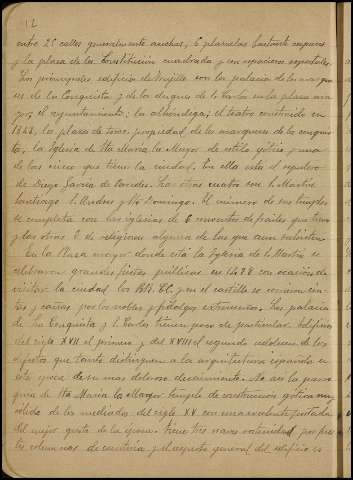 12
entre 25 calles generalmente anchas, 6 plazuelas bastante capaces
y la plaza de la Constitución cuadrada y con espaciosos soportales.
Los principales edificios de Trujillo son los palacios de los marque
ses de la Conquista y de los duques de S. Carlos en la plaza ma
yor; el ayuntamiento; la alhondiga; el teatro construido en
18 la plaza de toros propiedad de los marqueses de la conquis
ta, la Iglesia de Sta María la Mayor de estilo gótico y una
de las cinco que tiene la ciudad. En ella está el sepulcro
de Diego García de Paredes. Las otras cuatro son S. Martin
Santiago S. Andres y Sto Domingo. El número de sus templos
se completa con las iglesias de 6 conventos de frailes que tuvo
y las otras de religiosas algunos de los que aun subsisten.
En la Plaza mayor donde está la Iglesia de S. Martin se
celebraron grandes fiestas públicas en con ocasión de
visitar la ciudad los y en el castillo se corrieron cin
tas y cañas por los nobles y fidalgos extremeños. Los palacios
de la Conquista y S. Carlos tienen poco de particular. Edificios
del siglo XVII el primero y del XVIII el segundo adolecen de los
defectos que tanto distinguen a la arquitectura española en
esta época de su mas doloroso decaimiento. No así la parro
quia de Sta María la Mayor, templo de construccion gotica muy
sólido de los mediados del siglo XV con una excelente portada
del mejor gusto de la época. Tiene tres naves sostenidas por
tes columnas de cantería y el aspecto general del edificio es